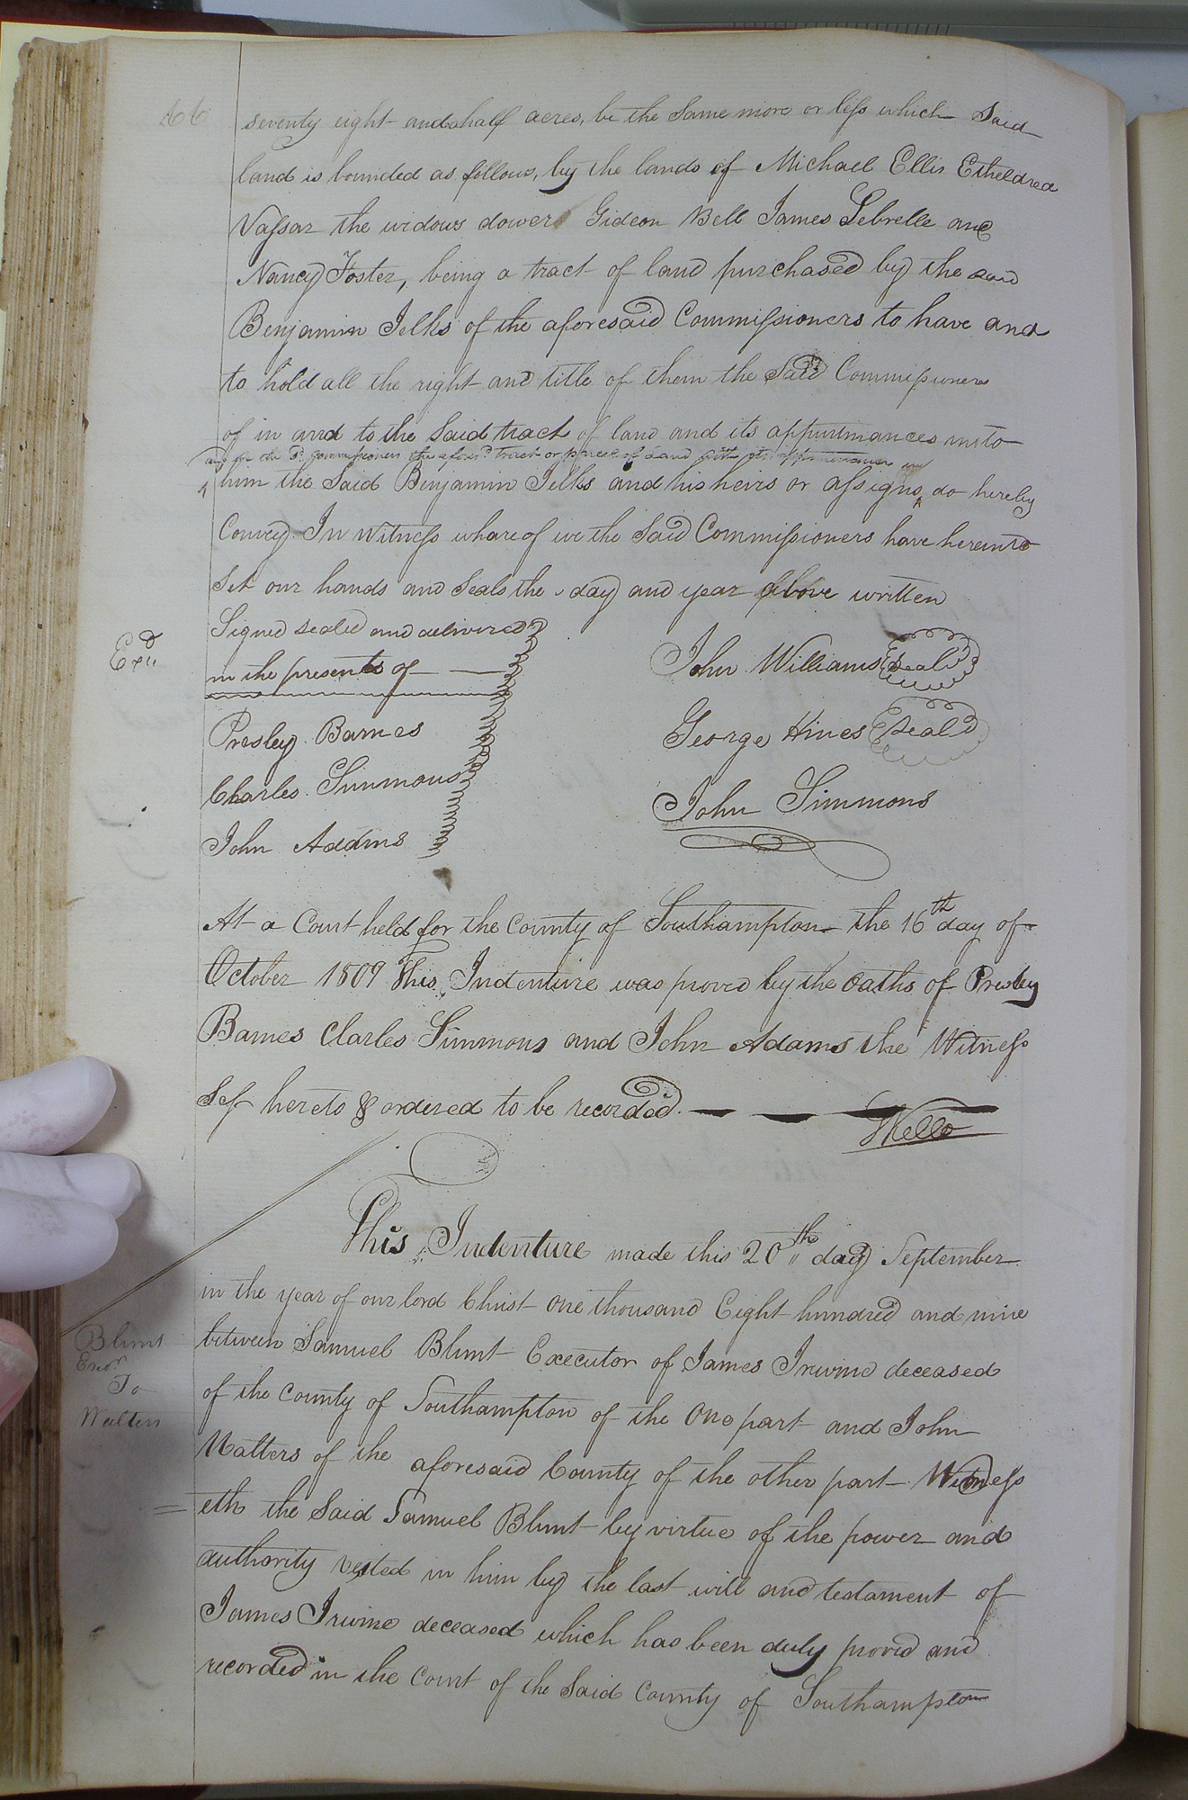 seventy eight and a half acres, be the Same more or less which Said
land is bounded as follows, by the lands of Michael Ellis Etheldred
Vassar the widows dower Gideon Bell James Lebrelle and
Nancy Foster, being a tract of land purchased by the said
Benjamin Jelks of the aforesaid Commissioners to have and
to hold all the right and title of them the Said Commissioners
of in and to the Said tract of land and its appurtenances unto
the aforesd tract or parcel of Land with its appurtenances
him the Said Benjamin Jelks and his heirs or assigns do hereby
Convey In Witness whareof we the Said Commissioners have hereunto
Set our hands and Seals the day and year above written
Signed sealed and delivered
in the presents of
Exd
John Williams Seal
Presley Barnes
George Hines Seal
Charles Simmons
John Simmons
John Addms
At a Court held for the County of Southampton the 16th day of
October 1809 This Indenture was proved by the oaths of Presley
Barnes Charles Simmons and John Adams the Witness
ses hereto & ordered to be recorded.
Kello
This Indenture made this 20th day September
in the year of our lord Christ one thousand Eight hundred and nine
Blunt
Exor
To
Watters
between Samuel Blunt Executor of James Irwine deceased
of the County of Southampton of the One part and John
Watters of the aforesaid County of the other part Witness
eth the Said Samuel Blunt by virtue of the power and
authority vested in him by the last will and testament of
James Irwine deceased which has been duly proved and
recorded in the Court of the Said County of Southampton